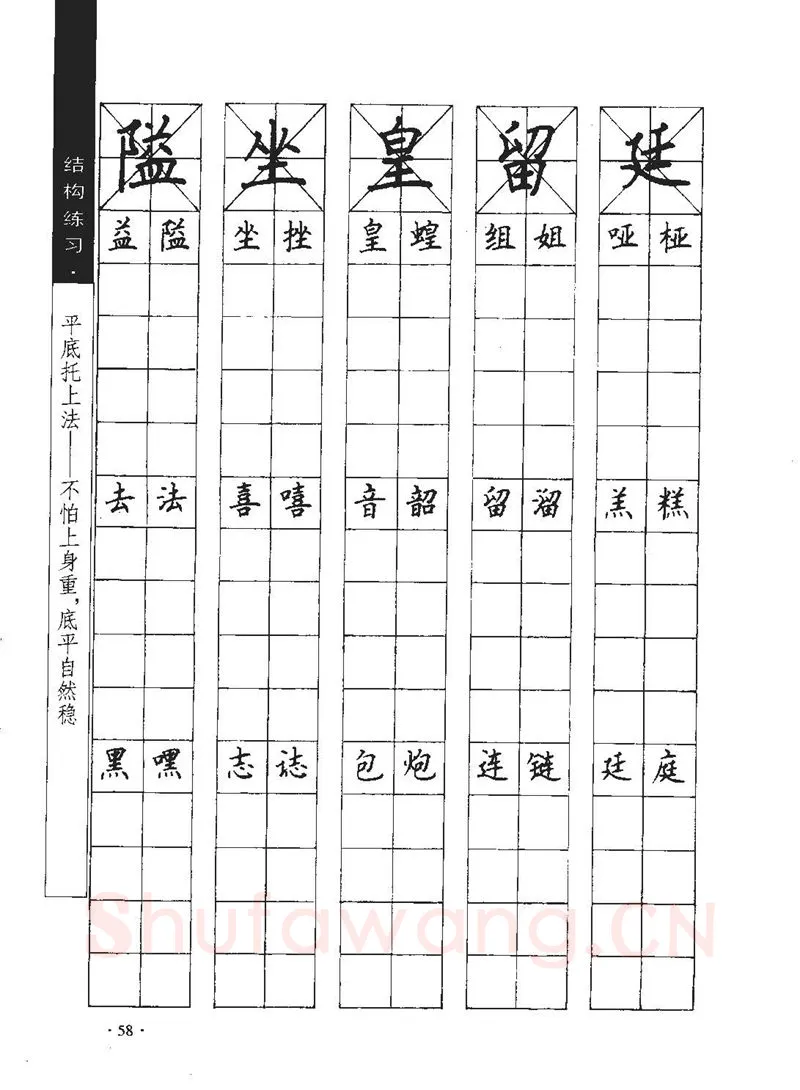 结构练习·
平底托上法——不怕上身重，底平自然稳
隘 坐 皇 留 廷
益 隘 坐 挫 皇 蝗 组 姐 哑 桠
去 法 喜 嘻 音 韶 留 溜 羔 糕
黑 嘿 志 誌 包 炮 连 链 廷 庭
Shufawang.CN
·58·